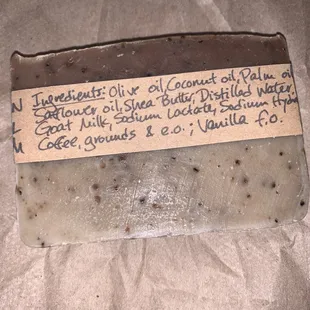 N Ingredients: Olive oil, Coconut oil, Palm oil
Safflower oil, Shea Butter, Distilled Water,
L Goat Milk, Sodium Lactate, Sodium Hydro
M Coffee, grounds & e.o.; Vanilla f.o.